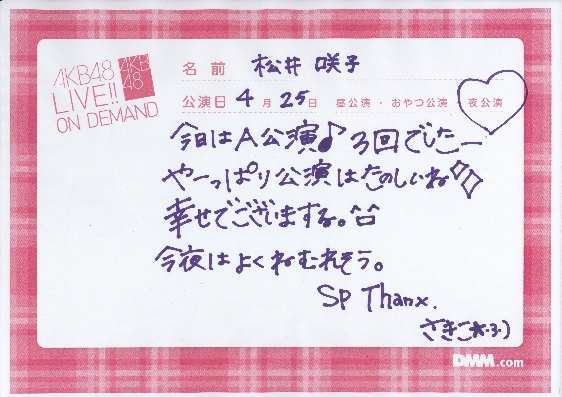 AKB48
LIVE!!
ON DEMAND
AKB
48
名前 松井咲子
公演日 4月25日 昼公演・おやつ公演・夜公演
今日はA公演♪3回でしたー
やーっぱり公演はたのしいね
幸せでございまする。^^
今夜はよくねむれそう。
SP Thanx.
さきこ(*・3・)
DMM.com